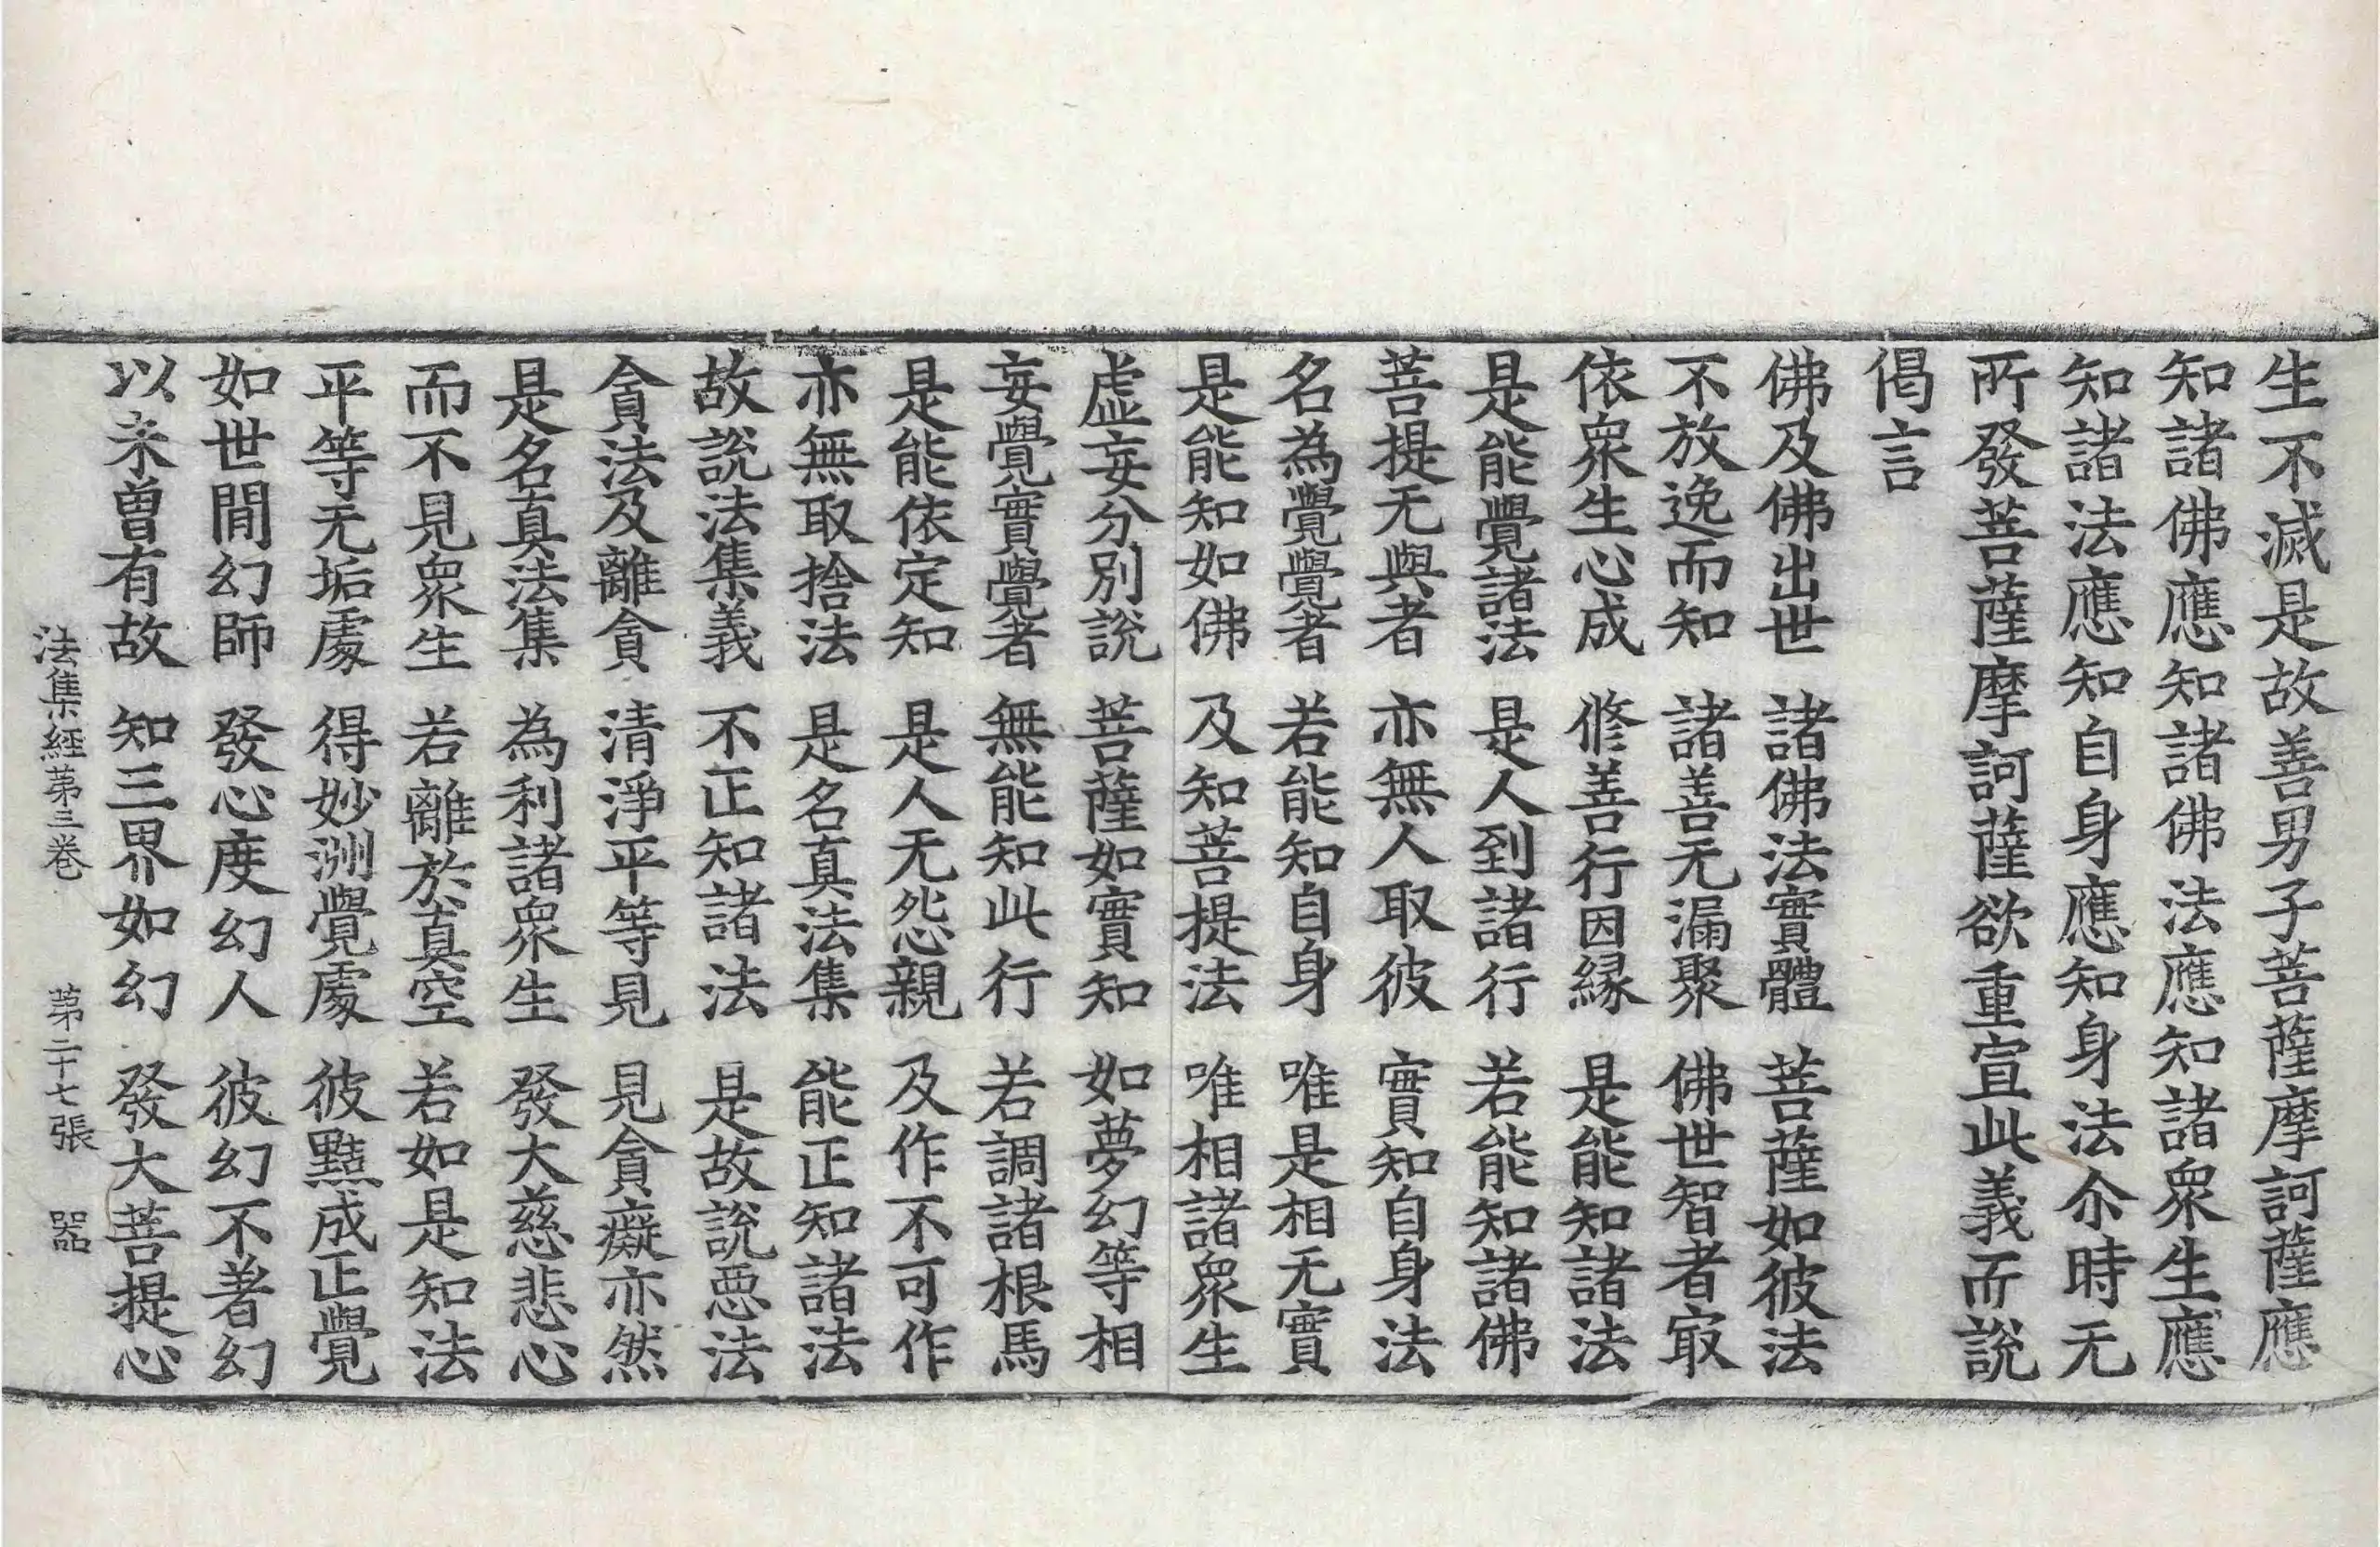 生不滅是故善男子菩薩摩訶薩應
知諸佛應知諸佛法應知諸衆生應
知諸法應知自身應知身法尒時无
所發菩薩摩訶薩欲重宣此義而說
偈言
佛及佛出世　諸佛法實體　菩薩如彼法
不放逸而知　諸善无漏聚　佛世智者㝡
依衆生心成　修善行因縁　是能知諸法
是能覺諸法　是人到諸行　若能知諸佛
菩提无與者　亦無人取彼　實知自身法
名為覺覺者　若能知自身　唯是相无實
是能知如佛　及知菩提法　唯相諸衆生
虛妄分別說　菩薩如實知　如夢幻等相
妄覺實覺者　無能知此行　若調諸根馬
是能依定知　是人无怨親　及作不可作
亦無取捨法　是名真法集　能正知諸法
故說法集義　不正知諸法　是故說惡法
貪法及離貪　清淨平等見　見貪癡亦然
是名真法集　為利諸衆生　發大慈悲心
而不見衆生　若離於真空　若如是知法
平等无垢處　得妙洲覺處　彼黠成正覺
如世間幻師　發心度幻人　彼幻不著幻
以未曽有故　知三界如幻　發大菩提心
法集經第三卷　第二十七張　器